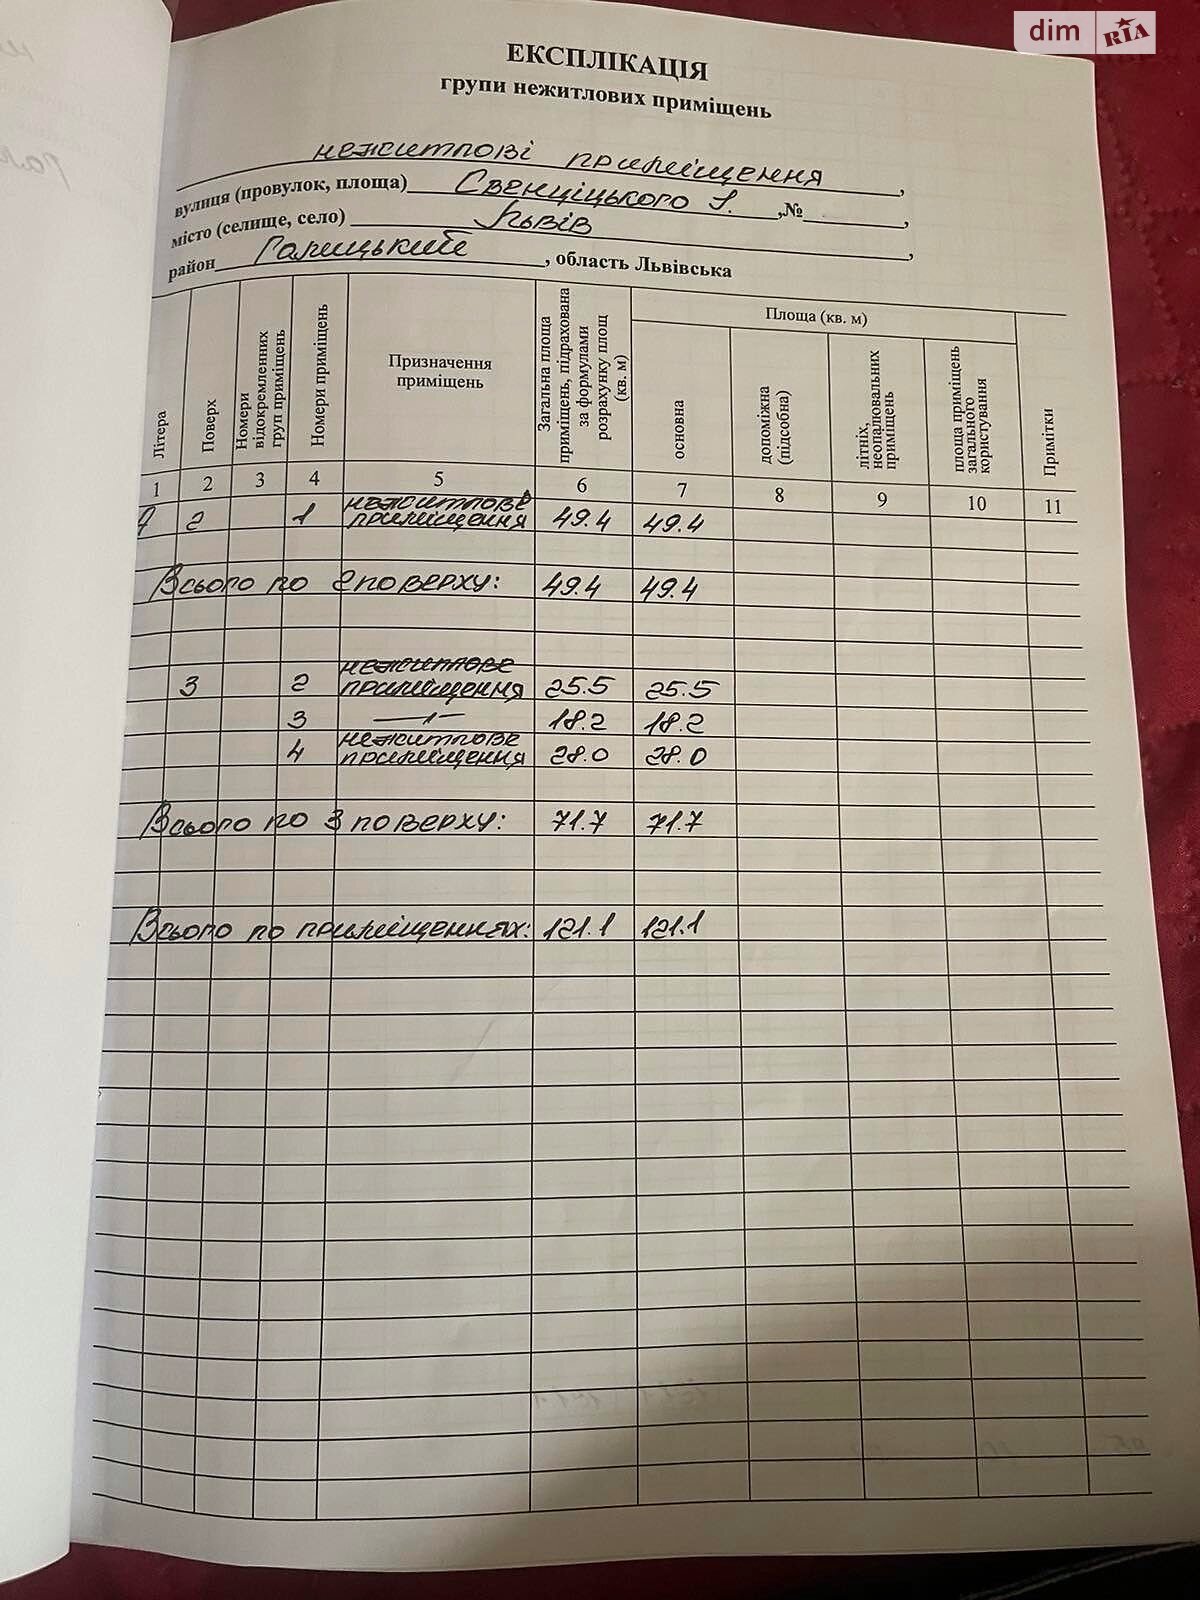 dim RIA
ЕКСПЛІКАЦІЯ
групи нежитлових приміщень
нежитлові приміщення,
вулиця (провулок, площа) Свенціцького І. ,№ ,
місто (селище, село) Львів ,
район Галицький , область Львівська
Літера
Поверх
Номери відокремленних груп приміщень
Номери приміщень
Призначення приміщень
Загальна площа приміщень, підрахована за формулами розрахунку площ (кв. м)
Площа (кв. м)
основна
допоміжна (підсобна)
літніх, неопалювальних приміщень
площа приміщень загального користування
Примітки
1 2 3 4 5 6 7 8 9 10 11
2 1 нежитлове приміщення 49.4 49.4
Всього по 2 поверху: 49.4 49.4
3 2 нежитлове приміщення 25.5 25.5
3 —"— 18.2 18.2
4 нежитлове приміщення 28.0 28.0
Всього по 3 поверху: 71.7 71.7
Всього по приміщеннях: 121.1 121.1